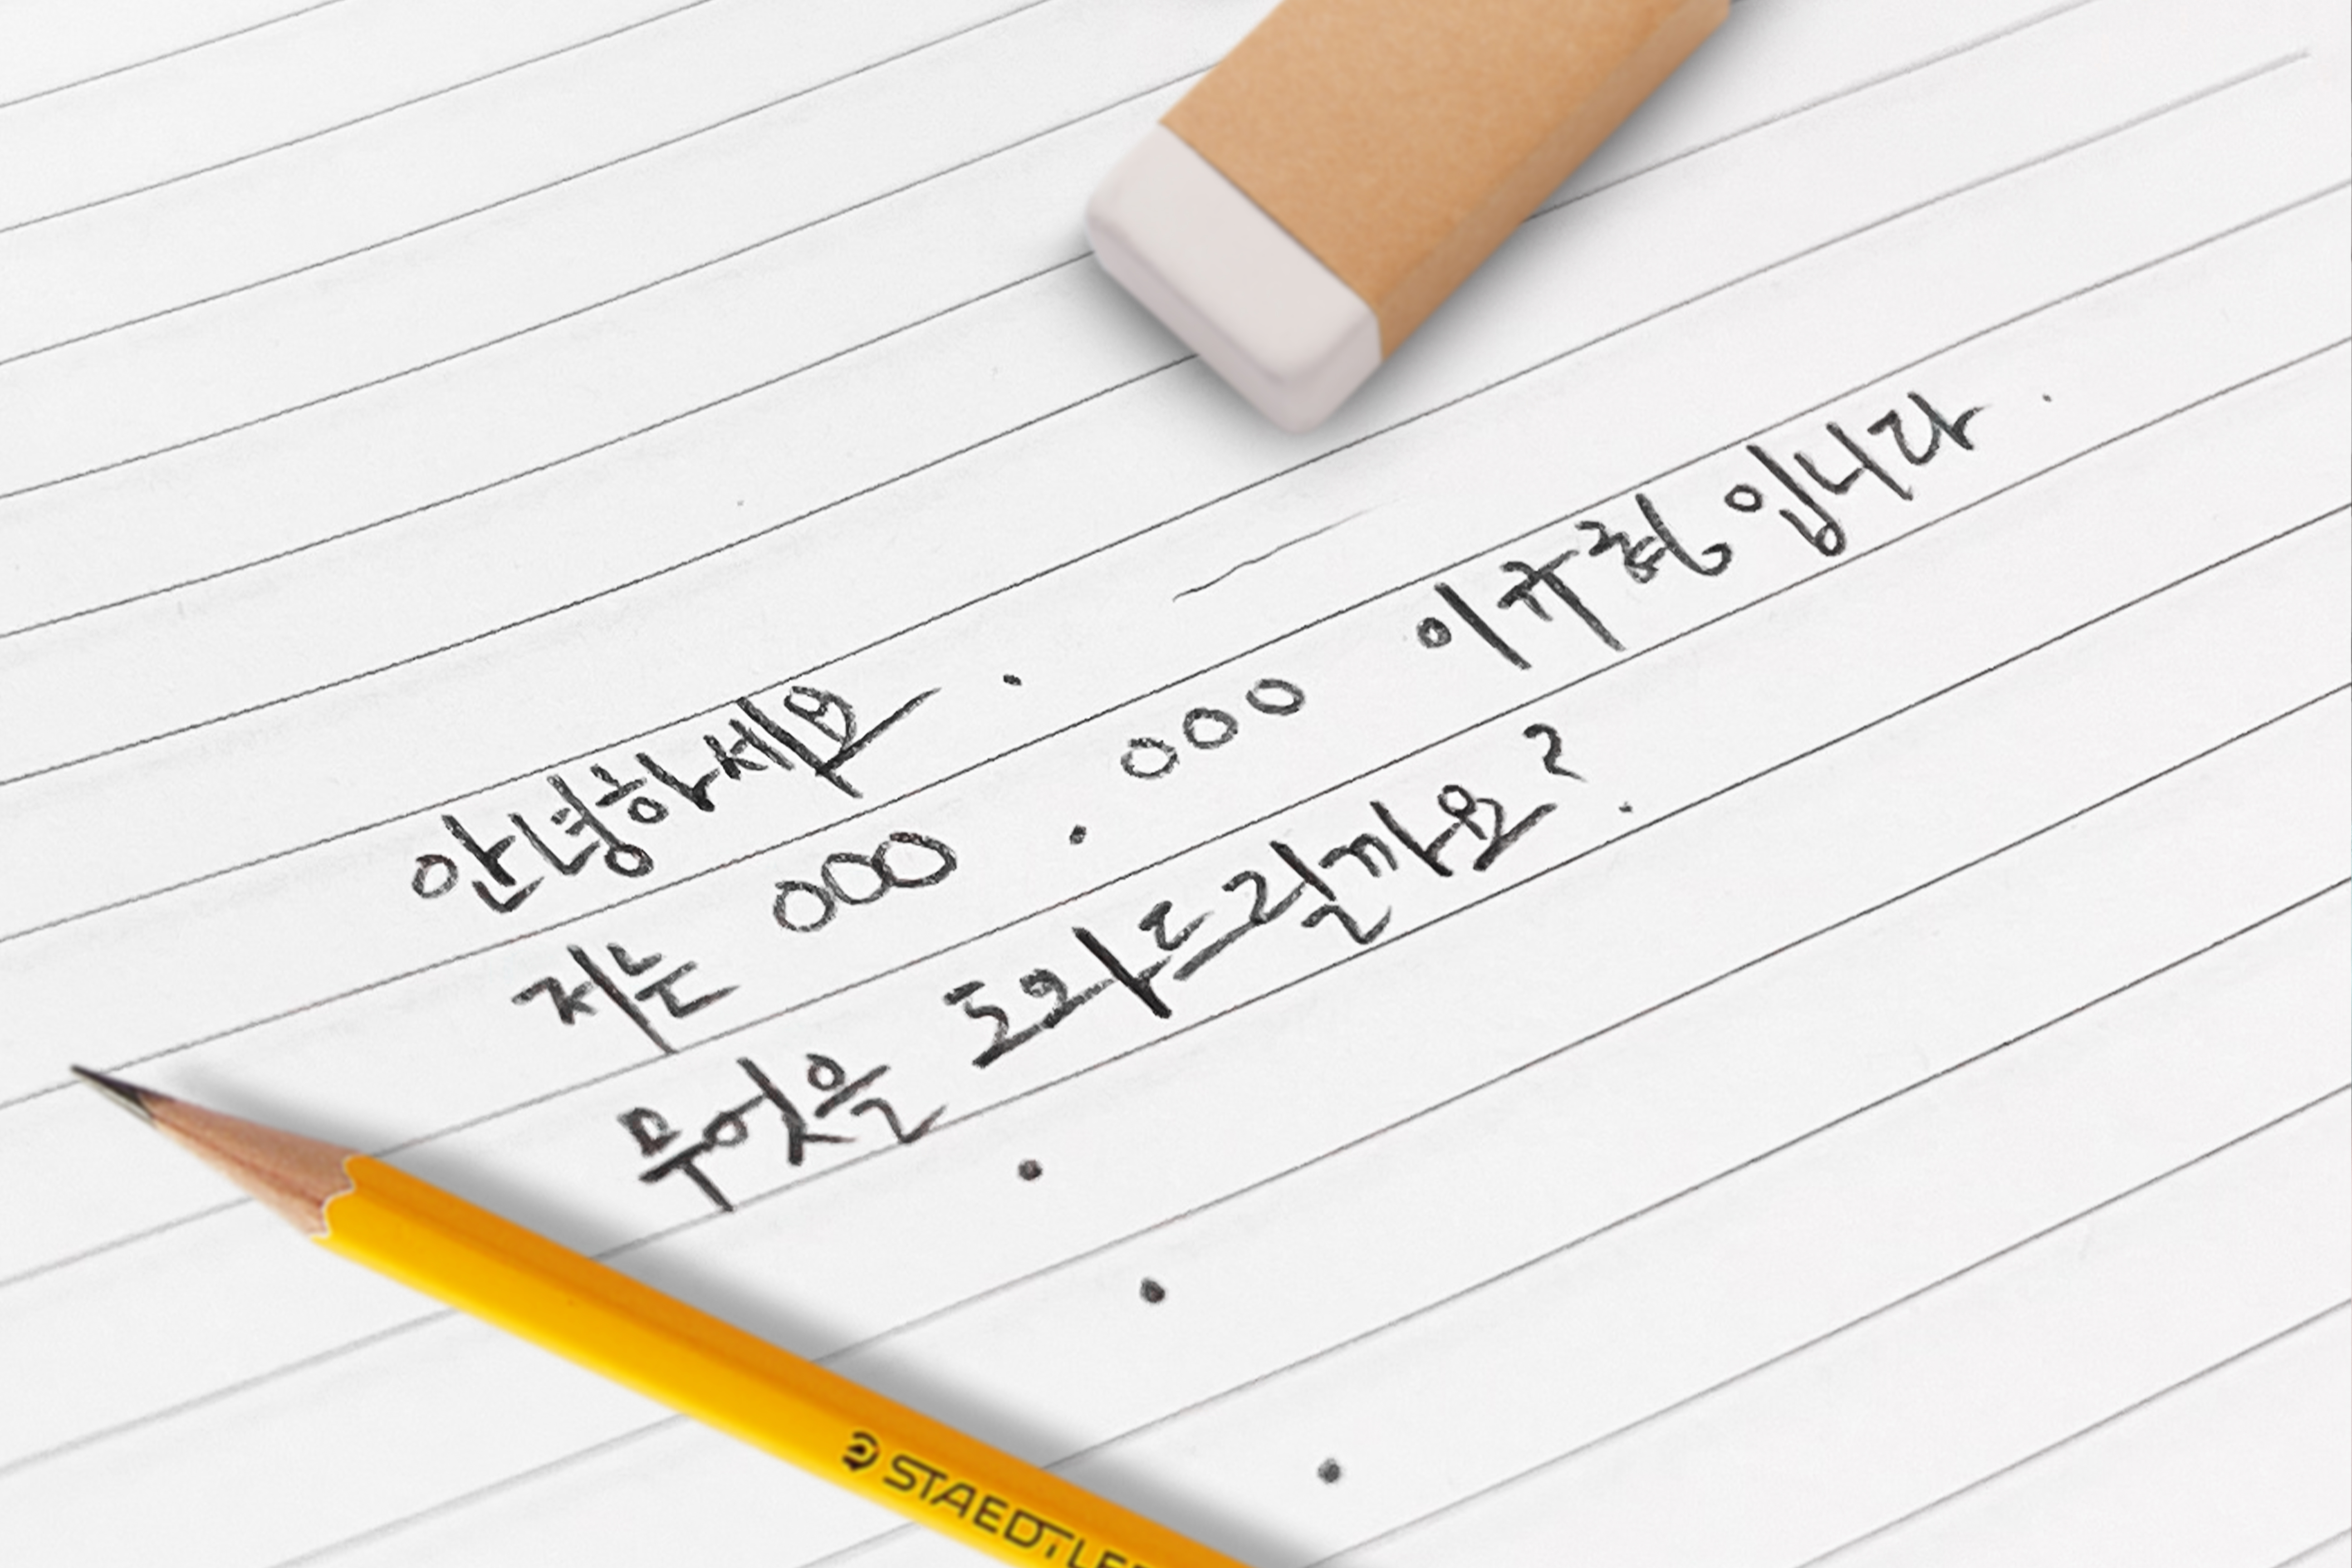 안녕하세요.
저는 OOO. OOO 이규형입니다.
무엇을 도와드릴까요?
STAEDTLER